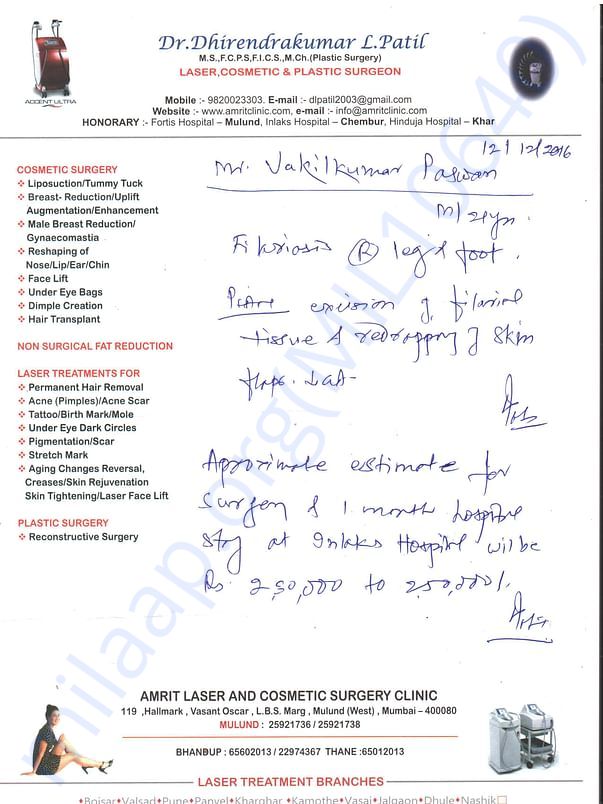 ACCENT ULTRA
Dr.Dhirendrakumar L.Patil
M.S.,F.C.P.S,F.I.C.S.,M.Ch.(Plastic Surgery)
LASER,COSMETIC & PLASTIC SURGEON
Mobile :- 9820023303. E-mail :- dlpatil2003@gmail.com
Website :- www.amritclinic.com, e-mail :- info@amritclinic.com
HONORARY :- Fortis Hospital – Mulund, Inlaks Hospital – Chembur, Hinduja Hospital – Khar
12/12/2016
Mr. Vakilkumar Paswan
Filariasis (R) leg & foot.
excision of filarial
tissue & redrapping of skin
flaps.
Aproximate estimate for
surgery & 1 month hospital
stay at Inlaks Hospital will be
Rs. 2,30,000 to 2,50,000/.
COSMETIC SURGERY
❖ Liposuction/Tummy Tuck
❖ Breast- Reduction/Uplift
Augmentation/Enhancement
❖ Male Breast Reduction/
Gynaecomastia
❖ Reshaping of
Nose/Lip/Ear/Chin
❖ Face Lift
❖ Under Eye Bags
❖ Dimple Creation
❖ Hair Transplant
NON SURGICAL FAT REDUCTION
LASER TREATMENTS FOR
❖ Permanent Hair Removal
❖ Acne (Pimples)/Acne Scar
❖ Tattoo/Birth Mark/Mole
❖ Under Eye Dark Circles
❖ Pigmentation/Scar
❖ Stretch Mark
❖ Aging Changes Reversal,
Creases/Skin Rejuvenation
Skin Tightening/Laser Face Lift
PLASTIC SURGERY
❖ Reconstructive Surgery
milaap.org(MIL10640)
AMRIT LASER AND COSMETIC SURGERY CLINIC
119 ,Hallmark , Vasant Oscar , L.B.S. Marg , Mulund (West) , Mumbai – 400080
MULUND : 25921736 / 25921738
BHANDUP : 65602013 / 22974367 THANE :65012013
LASER TREATMENT BRANCHES
•Boisar•Valsad•Pune•Panvel•Kharghar •Kamothe•Vasai•Jalgaon•Dhule•Nashik